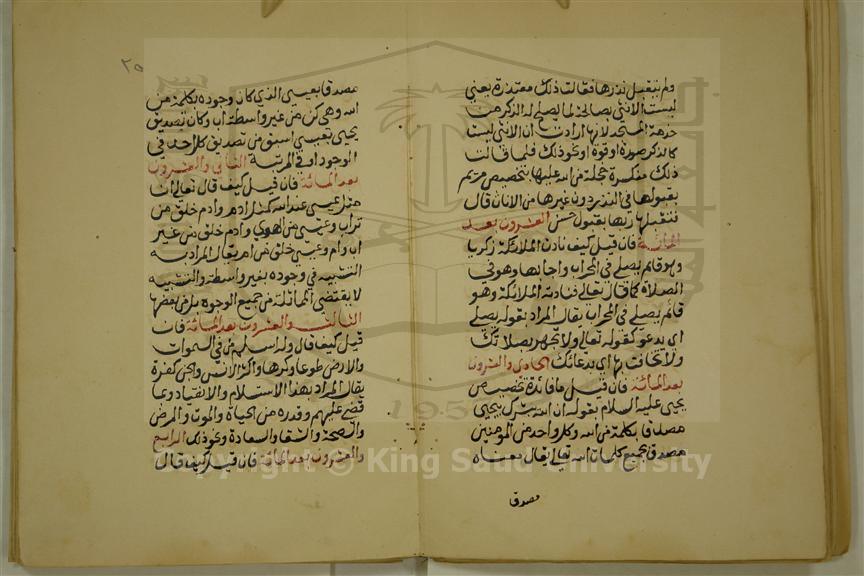 ولم يتقبل نذرها فقالت ذلك معتذرة يعني
ليست الانثى بصالحة لما يصلح له الذكر من
خدمة المسجد لانها ارادت ان الانثى ليست
كالذكر صورة او قوة او نحو ذلك فلما قالت
ذلك منكسرة خجلة من الله عليها بتخصيص مريم
بقبولها في النذر دون غيرها من الاناث قال
فتقبلها ربها بقبول حسن العشرون بعد
المائة فان قيل كيف نادت الملائكة زكريا
وهو قائم يصلي في المحراب واجابها وهو في
الصلاة كما قال تعالى فنادته الملائكة وهو
قائم يصلي في المحراب يقال المراد بقوله يصلي
اي يدعو كقوله تعالى ولا تجهر بصلاتك
ولا تخافت بها اي بدعائك الحادي والعشرون
بعد المائة فان قيل ما فائدة تخصيص
يحيى عليه السلام بقوله ان الله يبشرك بيحيى
مصدقا بكلمة من الله وكل واحد من المؤمنين
مصدق بجميع كلمات الله تعالى يقال معناه
مصدقا
٢٥
مصدقا بعيسى الذي كان وجوده بكلمة من
الله وهي كن من غير واسطة اب وكان تصديق
يحيى بعيسى اسبق من تصديق كل احد في
الوجود او في المرتبة الثاني والعشرون
بعد المائة فان قيل كيف قال تعالى ان
مثل عيسى عند الله كمثل ادم وادم خلق من
تراب وعيسى من الهوى وادم خلق من غير
اب وام وعيسى خلق من ام يقال المراد به
التشبيه في وجوده بغير واسطة والتشبيه
لا يقتضي المماثلة من جميع الوجوه بل من بعضها
الثالث والعشرون بعد المائة فان
قيل كيف قال وله اسلم من في السموات
والارض طوعا وكرها واكثر الانس والجن كفرة
يقال المراد بهذا الاستسلام والانقياد وما
قضى عليهم وقدره من الحياة والموت والمرض
والصحة والشقا والسعادة ونحو ذلك الرابع
والعشرون بعد المائة فان قيل كيف قال
1957
Copyright © King Saud University